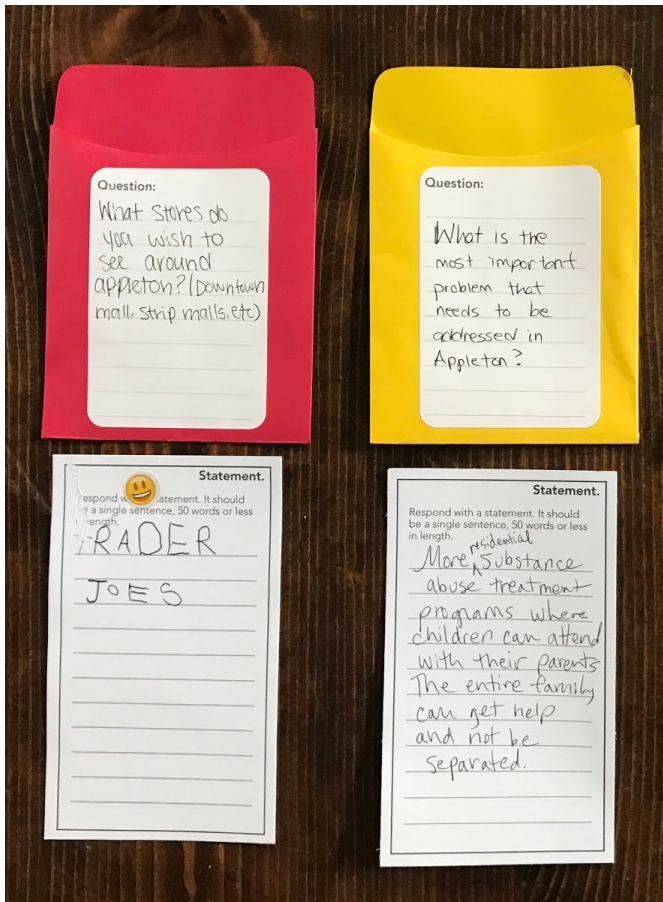 Question:
What stores do
you wish to
see around
appleton? (Downtown
mall, strip malls, etc)
Question:
What is the
most important
problem that
needs to be
addressed in
Appleton?
Statement.
statement. It should
be a single sentence, 50 words or less
TRADER
JOES
Statement.
Respond with a statement. It should
be a single sentence, 50 words or less
in length.
More residential Substance
abuse treatment
programs where
children can attend
with their parents
The entire family
can get help
and not be
separated.